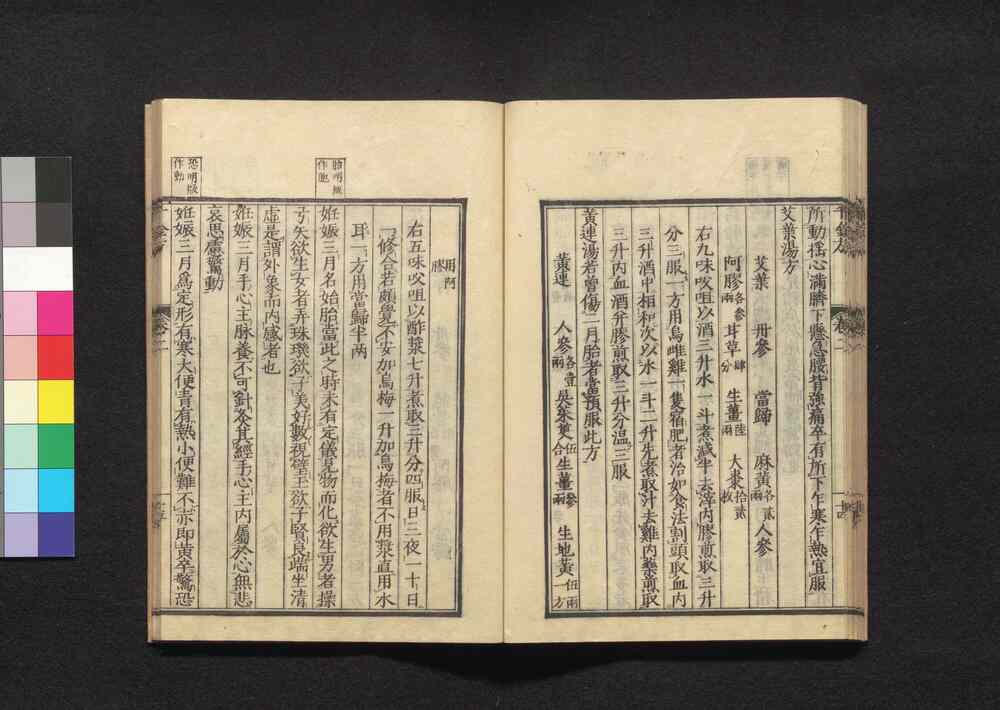 所動搖心滿臍下懸急腰背強痛卒有所下乍寒乍熱宜服
艾葉湯方
艾葉 丹參 當歸 麻黃各貳兩 人參
阿膠各參兩 甘草肆分 生薑陸兩 大棗拾貳枚
右九味㕮咀以酒三升水一斗煮減半去滓內膠煎取三升
分三服一方用烏雌雞一隻宿肥者治如食法割頭取血內
三升酒中相和次以水一斗二升先煮取汁去雞內藥煎取
三升內血酒并膠煎取三升分溫三服
黃連湯若曾傷二月胎者當預服此方
黃連 人參各壹兩 吳茱萸伍合 生薑參兩 生地黃伍兩一方
用阿膠
右五味㕮咀以酢漿七升煮取三升分四服日三夜一十日
一修合若頗覺不安加烏梅一升加烏梅者不用漿直用水
耳一方用當歸半兩
胎明版作胞
妊娠三月名始胎當此之時未有定儀見物而化欲生男者操
弓矢欲生女者弄珠璣欲子美好數視璧玉欲子賢良端坐清
虛是謂外象而內感者也
妊娠三月手心主脉養不可針灸其經手心主內屬於心無悲
哀思慮驚動
恐明版作動
妊娠三月爲定形有寒大便青有熱小便難不赤即黃卒驚恐
千金方
卷二